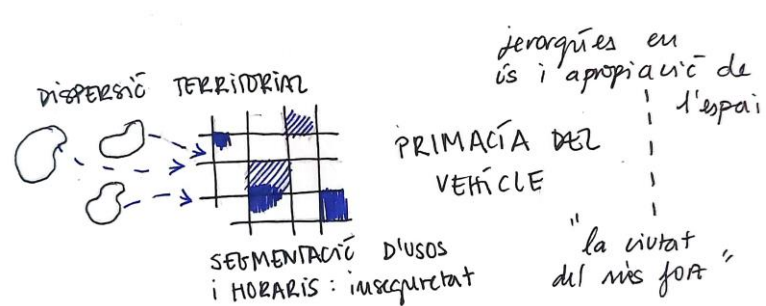 DISPERSIÓ TERRITORIAL
SEGMENTACIÓ D'USOS
i HORARIS : inseguretat
PRIMACÍA DEL
VEHÍCLE
jerarquíes en
ús i apropiació de
l'espai
"la ciutat
del més fort"